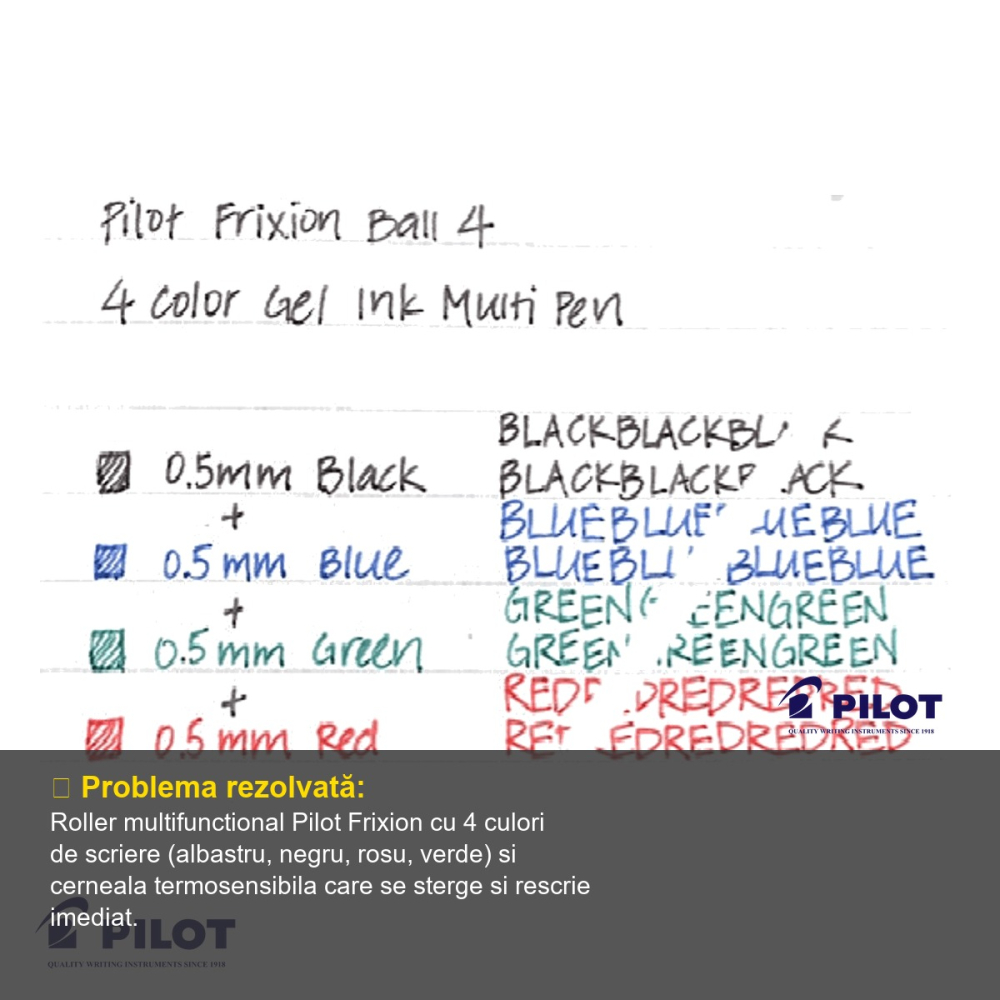 Pilot Frixion Ball 4
4 Color Gel Ink Multi Pen
BLACKBLACKBL K
0.5mm Black BLACKBLACK ACK
+ BLUEBLUE UEBLUE
0.5mm Blue BLUEBLU BLUEBLUE
+ GREENG EENGREEN
0.5mm Green GREEN REENGREEN
+ REDR DREDREDRED
0.5mm Red RE EDREDREDRED
PILOT
QUALITY WRITING INSTRUMENTS SINCE 1918
Problema rezolvată:
Roller multifunctional Pilot Frixion cu 4 culori
de scriere (albastru, negru, rosu, verde) si
cerneala termosensibila care se sterge si rescrie
imediat.
PILOT
QUALITY WRITING INSTRUMENTS SINCE 1918